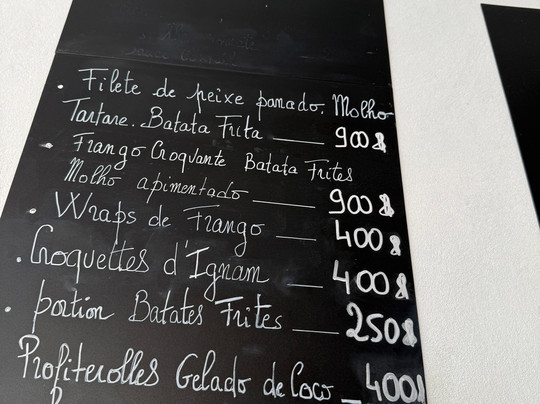 . Filete de peixe panado. Molho
Tartare. Batata Frita ___ 900$
. Frango Croquante Batata Frites
Molho apimentado ___ 900$
. Wraps de Frango ___ 400$
. Croquettes d'Ignam ___ 400$
. portion Batates Frites ___ 250$
Profiterolles Gelado de Coco _ 400$